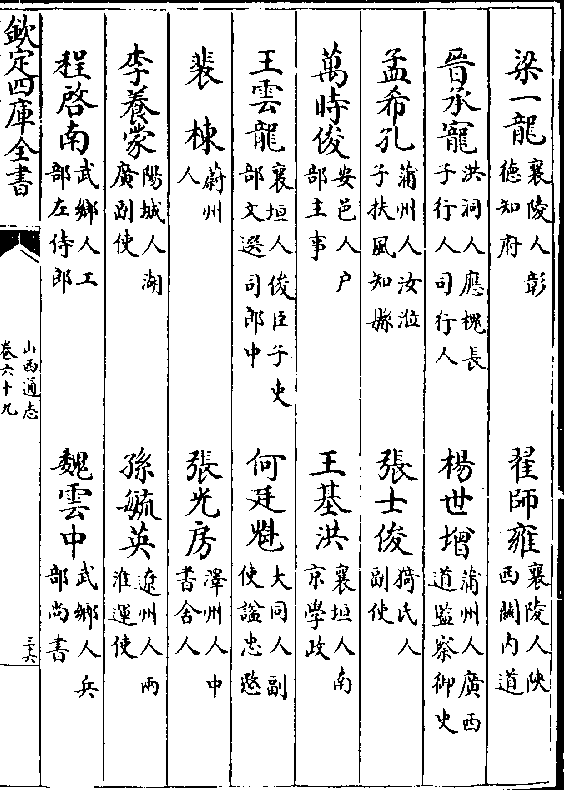 梁一龍襄陵人彰德知府
翟師雍襄陵人陜西關内道
晉承寵洪洞人應槐長子行人司行人
楊世增蒲州人廣西道監察御史
孟希孔蒲州人汝濨子扶風知縣
張士俊猗氏人副使
萬時俊安邑人户部主事
王基洪襄垣人南京學政
王雲龍襄垣人俊臣子吏部文選司郎中
何廷魁大同人副使諡忠愍
裴棟蔚州人
張光房澤州人中書舍人
李養蒙陽城人湖廣副使
孫毓英遼州人兩淮運使
程啓南武鄉人工部左侍郎
魏雲中武鄉人兵部尚書
欽定四庫全書
山西通志
卷六十九
三六